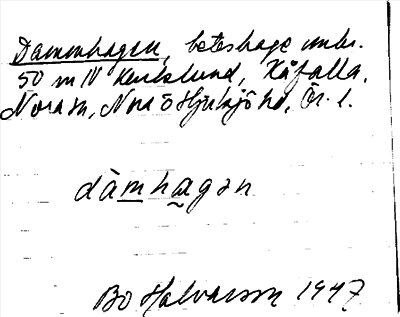 Dammhagen, beteshage omkr.
50 m N Karlslund, Kåfalla,
Nora sn, Nora o Hjulsjö hd, Ör. l.
dàmhagən
Bo Halvarson 1947